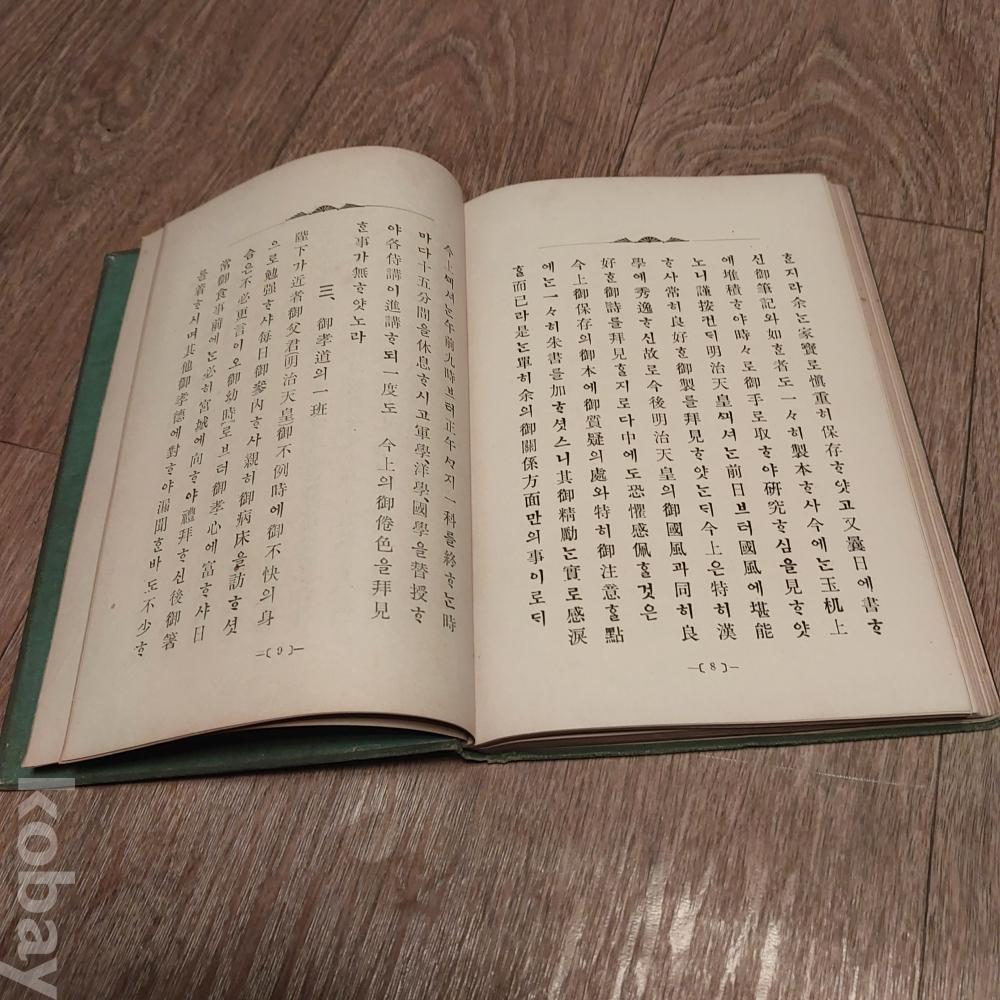 ᄒᆞᆯ지라余ᄂᆞᆫ家寶로愼重히保存ᄒᆞ얏고又曩日에書ᄒᆞ
신御筆記와如ᄒᆞᆫ者도一々히製本ᄒᆞ사今에ᄂᆞᆫ玉机上
에堆積ᄒᆞ야時々로御手로取ᄒᆞ야硏究ᄒᆞ심을見ᄒᆞ얏
노니謹按컨ᄃᆡ明治天皇ᄭᅦ셔ᄂᆞᆫ前日브터國風에堪能
ᄒᆞ사常히良好ᄒᆞᆫ御製를拜見ᄒᆞ얏ᄂᆞᆫᄃᆡ今上은特히漢
學에秀逸ᄒᆞ신故로今後明治天皇의御國風과同히良
好ᄒᆞᆫ御詩를拜見ᄒᆞᆯ지로다中에도恐懼感佩ᄒᆞᆯ것은
今上御保存의御本에御質疑의處와特히御注意ᄒᆞᆯ點
에ᄂᆞᆫ一々히朱書를加ᄒᆞ셧스니其御精勵ᄂᆞᆫ實로感淚
ᄒᆞᆯ而已라是ᄂᆞᆫ單히余의御關係方面만의事이로ᄃᆡ
8
今上ᄭᅦ셔ᄂᆞᆫ午前九時브터正午ᄭᆞ지一科를終ᄒᆞᄂᆞᆫ時
마다十五分間을休息ᄒᆞ시고軍學洋學、國學을替授ᄒᆞ
야各侍講이進講ᄒᆞ되一度도 今上의御倦色을拜見
ᄒᆞᆫ事가無ᄒᆞ얏노라
三、御孝道의一班
陛下가近者御父君明治天皇御不例時에御不快의身
으로勉强ᄒᆞ샤每日御參內ᄒᆞ사親히御病床을訪ᄒᆞ셧
슴은不必更言이오御幼時로브터御孝心에富ᄒᆞ샤日
常御食事前에ᄂᆞᆫ必히宮城에向ᄒᆞ야禮拜ᄒᆞ신後御箸
를着ᄒᆞ시며其他御孝德에對ᄒᆞ야漏聞ᄒᆞᆫ바도不少ᄒᆞ
9
kobay